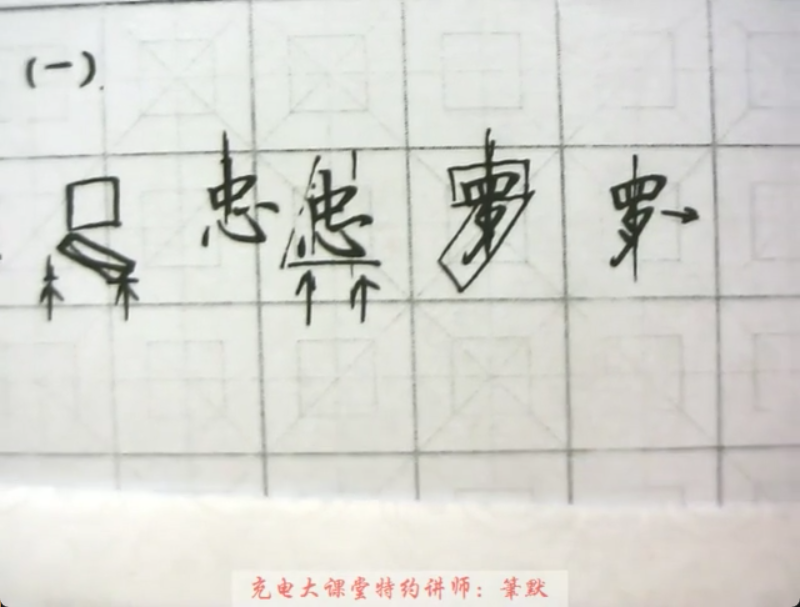 (一)
忠 忠 罗 罗
充电大课堂特约讲师：笔默